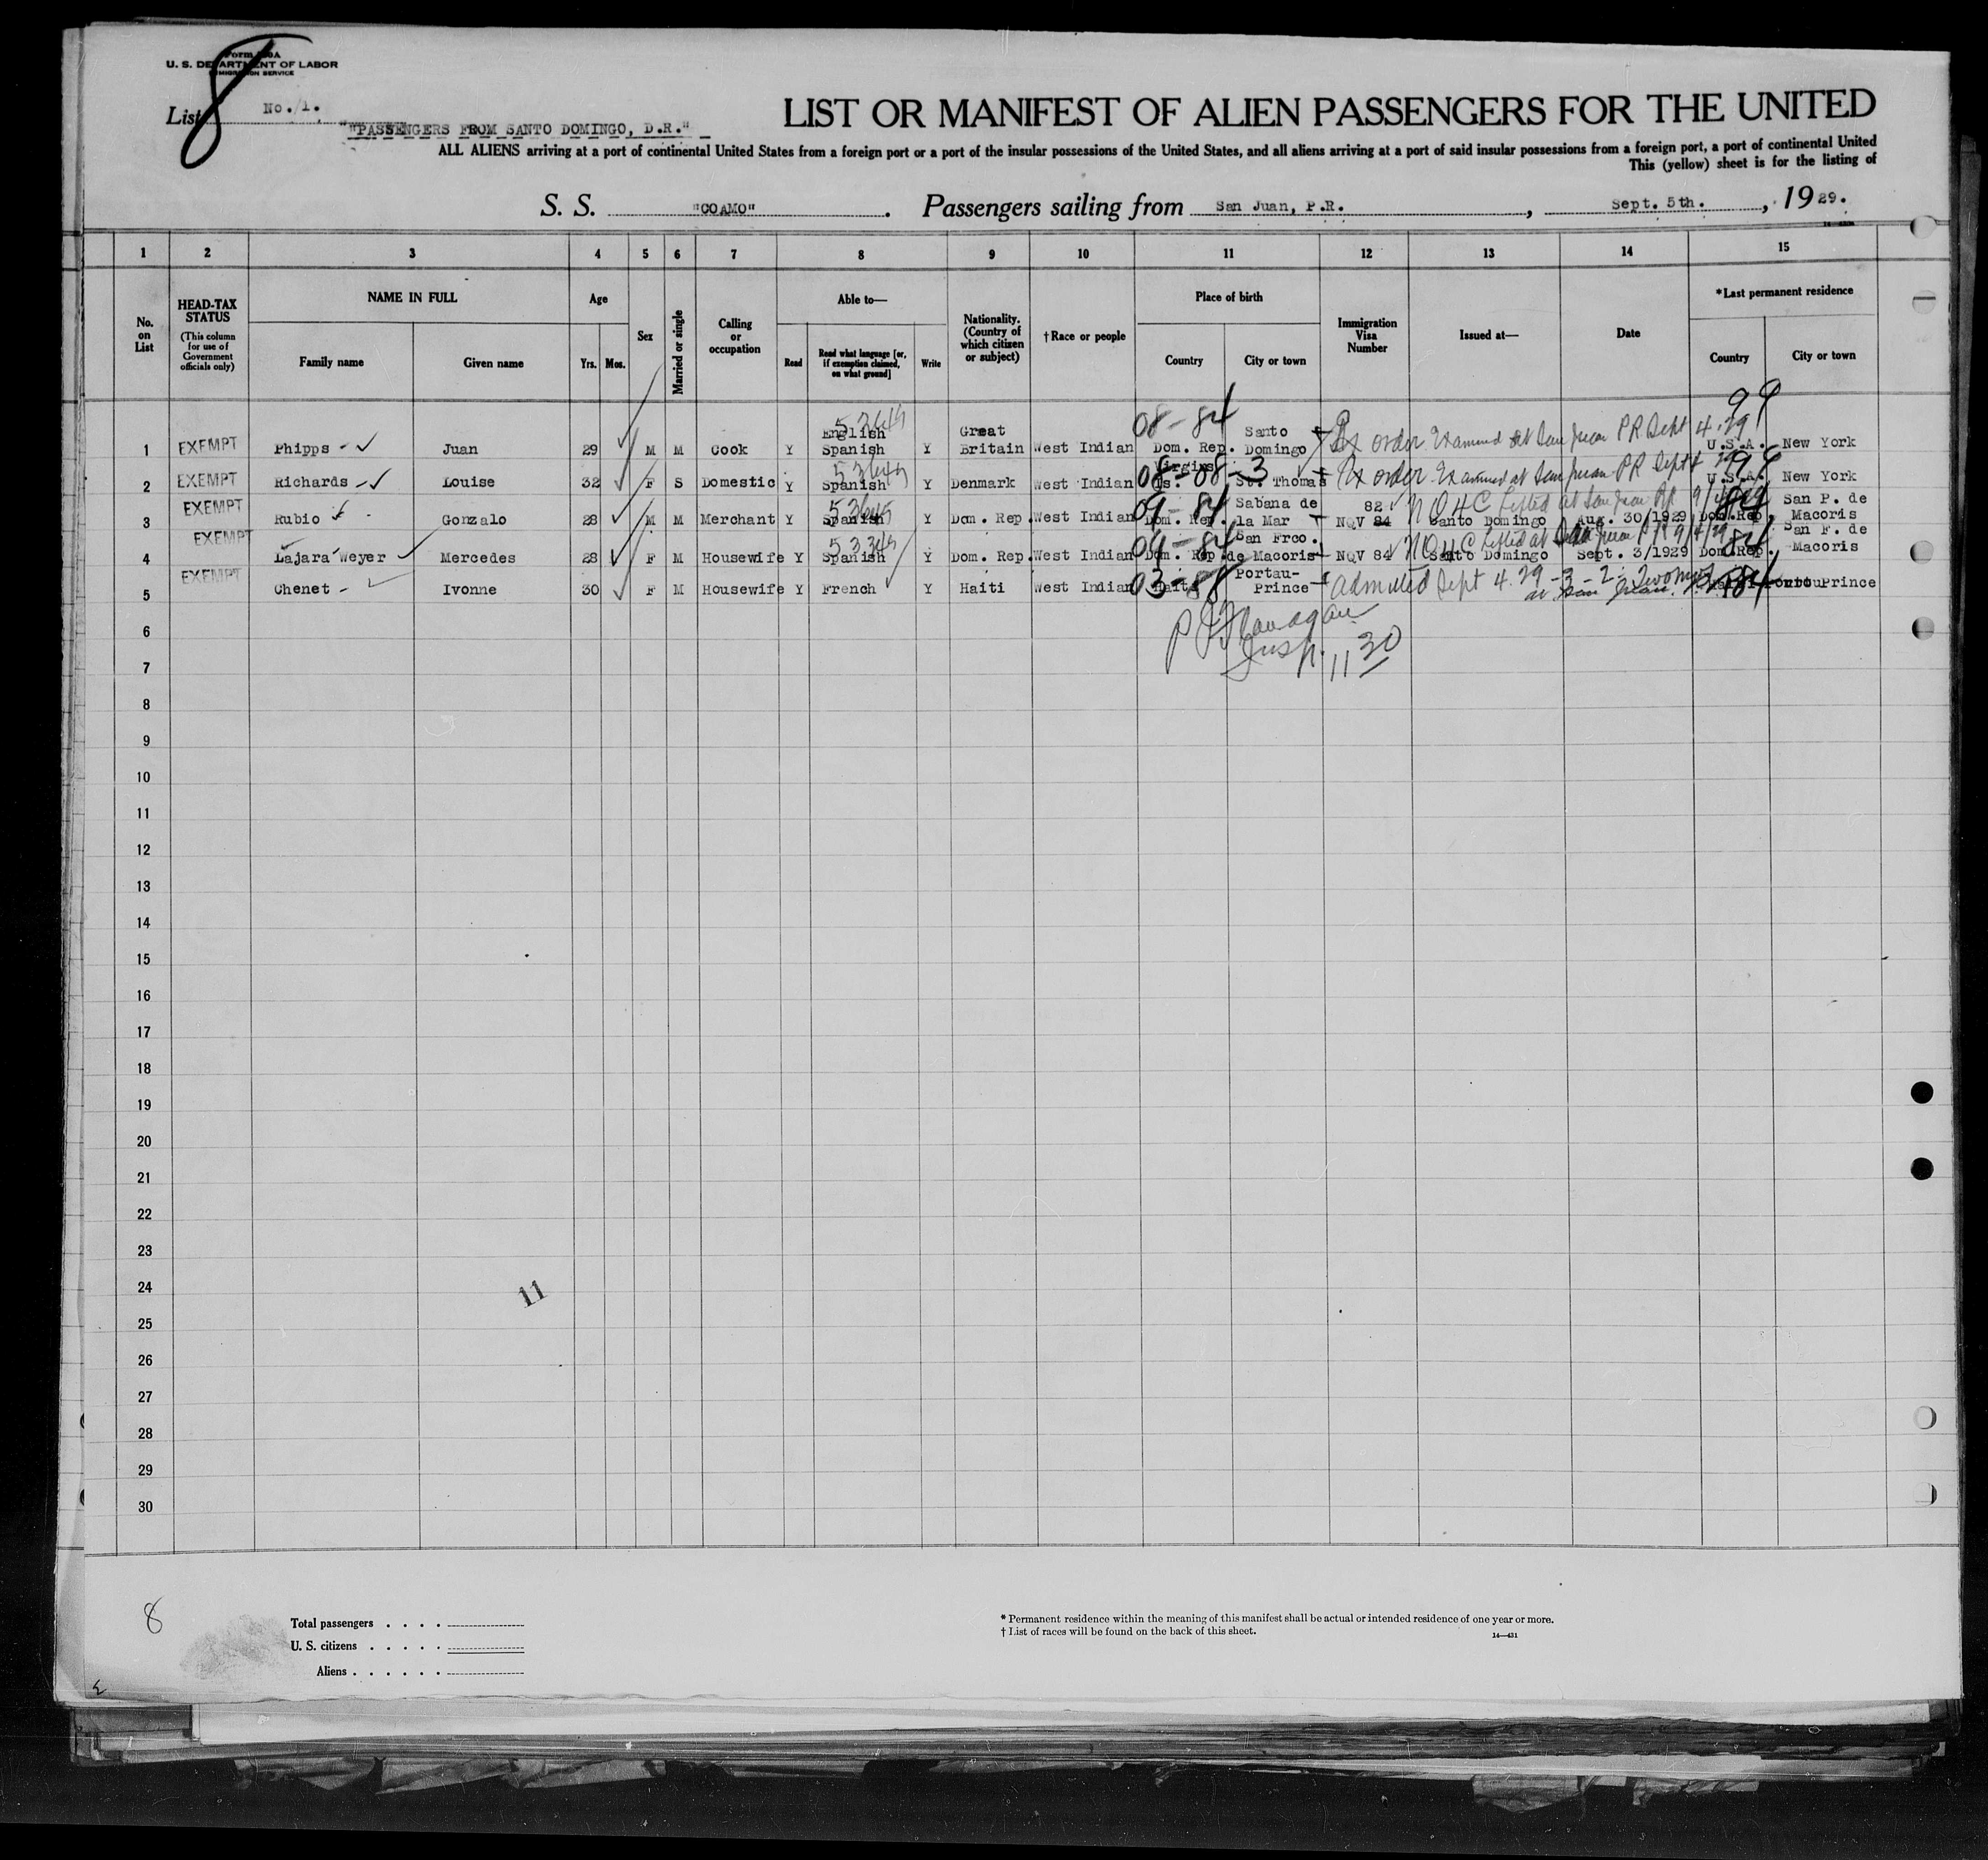 Form 630A
U. S. DEPARTMENT OF LABOR
IMMIGRATION SERVICE
8
List No. 1.
"PASSENGERS FROM SANTO DOMINGO, D.R."
LIST OR MANIFEST OF ALIEN PASSENGERS FOR THE UNITED
ALL ALIENS arriving at a port of continental United States from a foreign port or a port of the insular possessions of the United States, and all aliens arriving at a port of said insular possessions from a foreign port, a port of continental United
This (yellow) sheet is for the listing of
S. S. "COAMO". Passengers sailing from San Juan, P.R., Sept. 5th., 1929.
1 2 3 4 5 6 7 8 9 10 11 12 13 14 15
No. on List
HEAD-TAX STATUS
(This column for use of Government officials only)
NAME IN FULL
Family name Given name
Age
Yrs. Mos.
Sex
Married or single
Calling or occupation
Able to—
Read Read what language [or, if exemption claimed, on what ground] Write
Nationality. (Country of which citizen or subject)
†Race or people
Place of birth
Country City or town
Immigration Visa Number
Issued at—
Date
*Last permanent residence
Country City or town
1 EXEMPT Phipps Juan 29 M M Cook Y English Spanish Y Great Britain West Indian 08-84 Dom. Rep. Santo Domingo order Examined at San Juan PR Sept 4.29 99 U.S.A. New York
2 EXEMPT Richards Louise 32 F S Domestic Y Spanish Y Denmark West Indian 08-08-3 Virgins Is. St. Thomas order Examined at San Juan PR Sept 4 29 99 U.S.A. New York
3 EXEMPT Rubio Gonzalo 28 M M Merchant Y Spanish Y Dom. Rep. West Indian 09-84 Dom. Rep. Sabana de la Mar 82 NQV 84 Lifted at San Juan PR Santo Domingo Aug. 30/1929 Dom. Rep. San P. de Macoris
4 EXEMPT Lajara Weyer Mercedes 28 F M Housewife Y Spanish Y Dom. Rep. West Indian 09-84 Dom. Rep. San Frco. de Macoris NQV 84 Lifted at San Juan PR 9/4/29 Santo Domingo Sept. 3/1929 84 Dom. Rep. San F. de Macoris
5 EXEMPT Chenet Ivonne 30 F M Housewife Y French Y Haiti West Indian 03-88 Haiti Portau-Prince admitted Sept 4.29 -3-2- Two mos at San Juan
6
7
8
9
10
11
12
13
14
15
16
17
18
19
20
21
22
23
24
25
26
27
28
29
30
11 30
11
8
Total passengers . . . .
U. S. citizens . . . . .
Aliens . . . . . .
* Permanent residence within the meaning of this manifest shall be actual or intended residence of one year or more.
† List of races will be found on the back of this sheet.
14—431